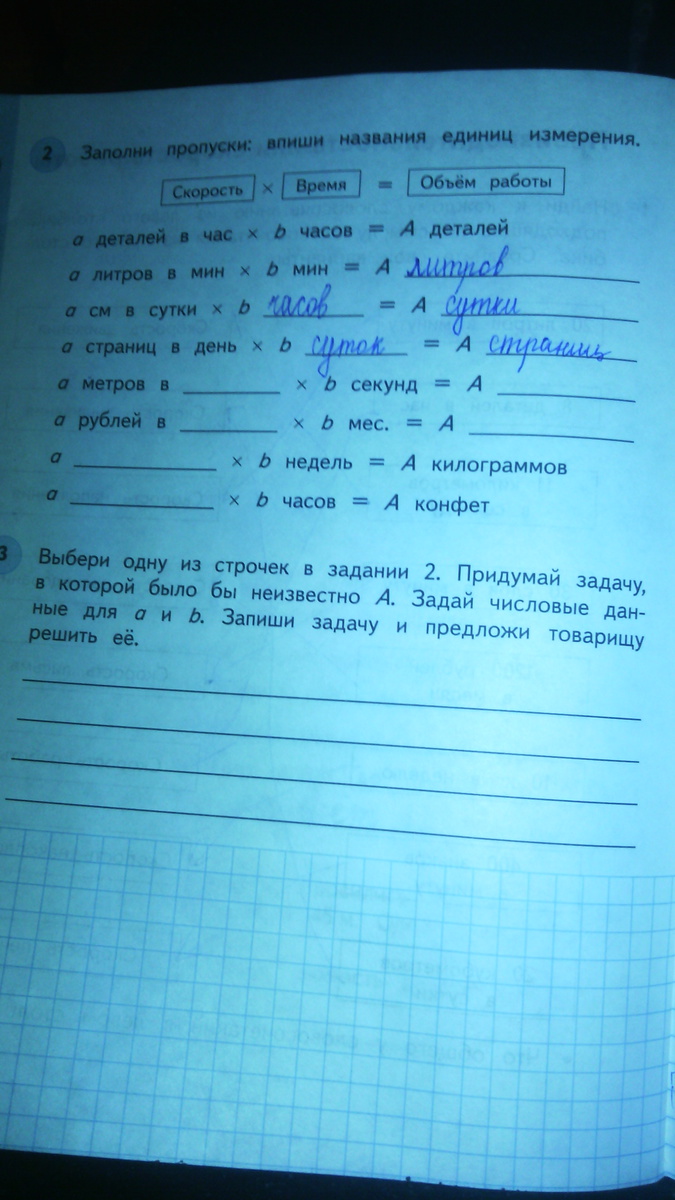 2 Заполни пропуски: впиши названия единиц измерения.
Скорость × Время = Объём работы
a деталей в час × b часов = A деталей
a литров в мин × b мин = A литров
a см в сутки × b часов = A сутки
a страниц в день × b суток = A страниц
a метров в × b секунд = A
a рублей в × b мес. = A
a × b недель = A килограммов
a × b часов = A конфет
3 Выбери одну из строчек в задании 2. Придумай задачу,
в которой было бы неизвестно A. Задай числовые дан-
ные для a и b. Запиши задачу и предложи товарищу
решить её.